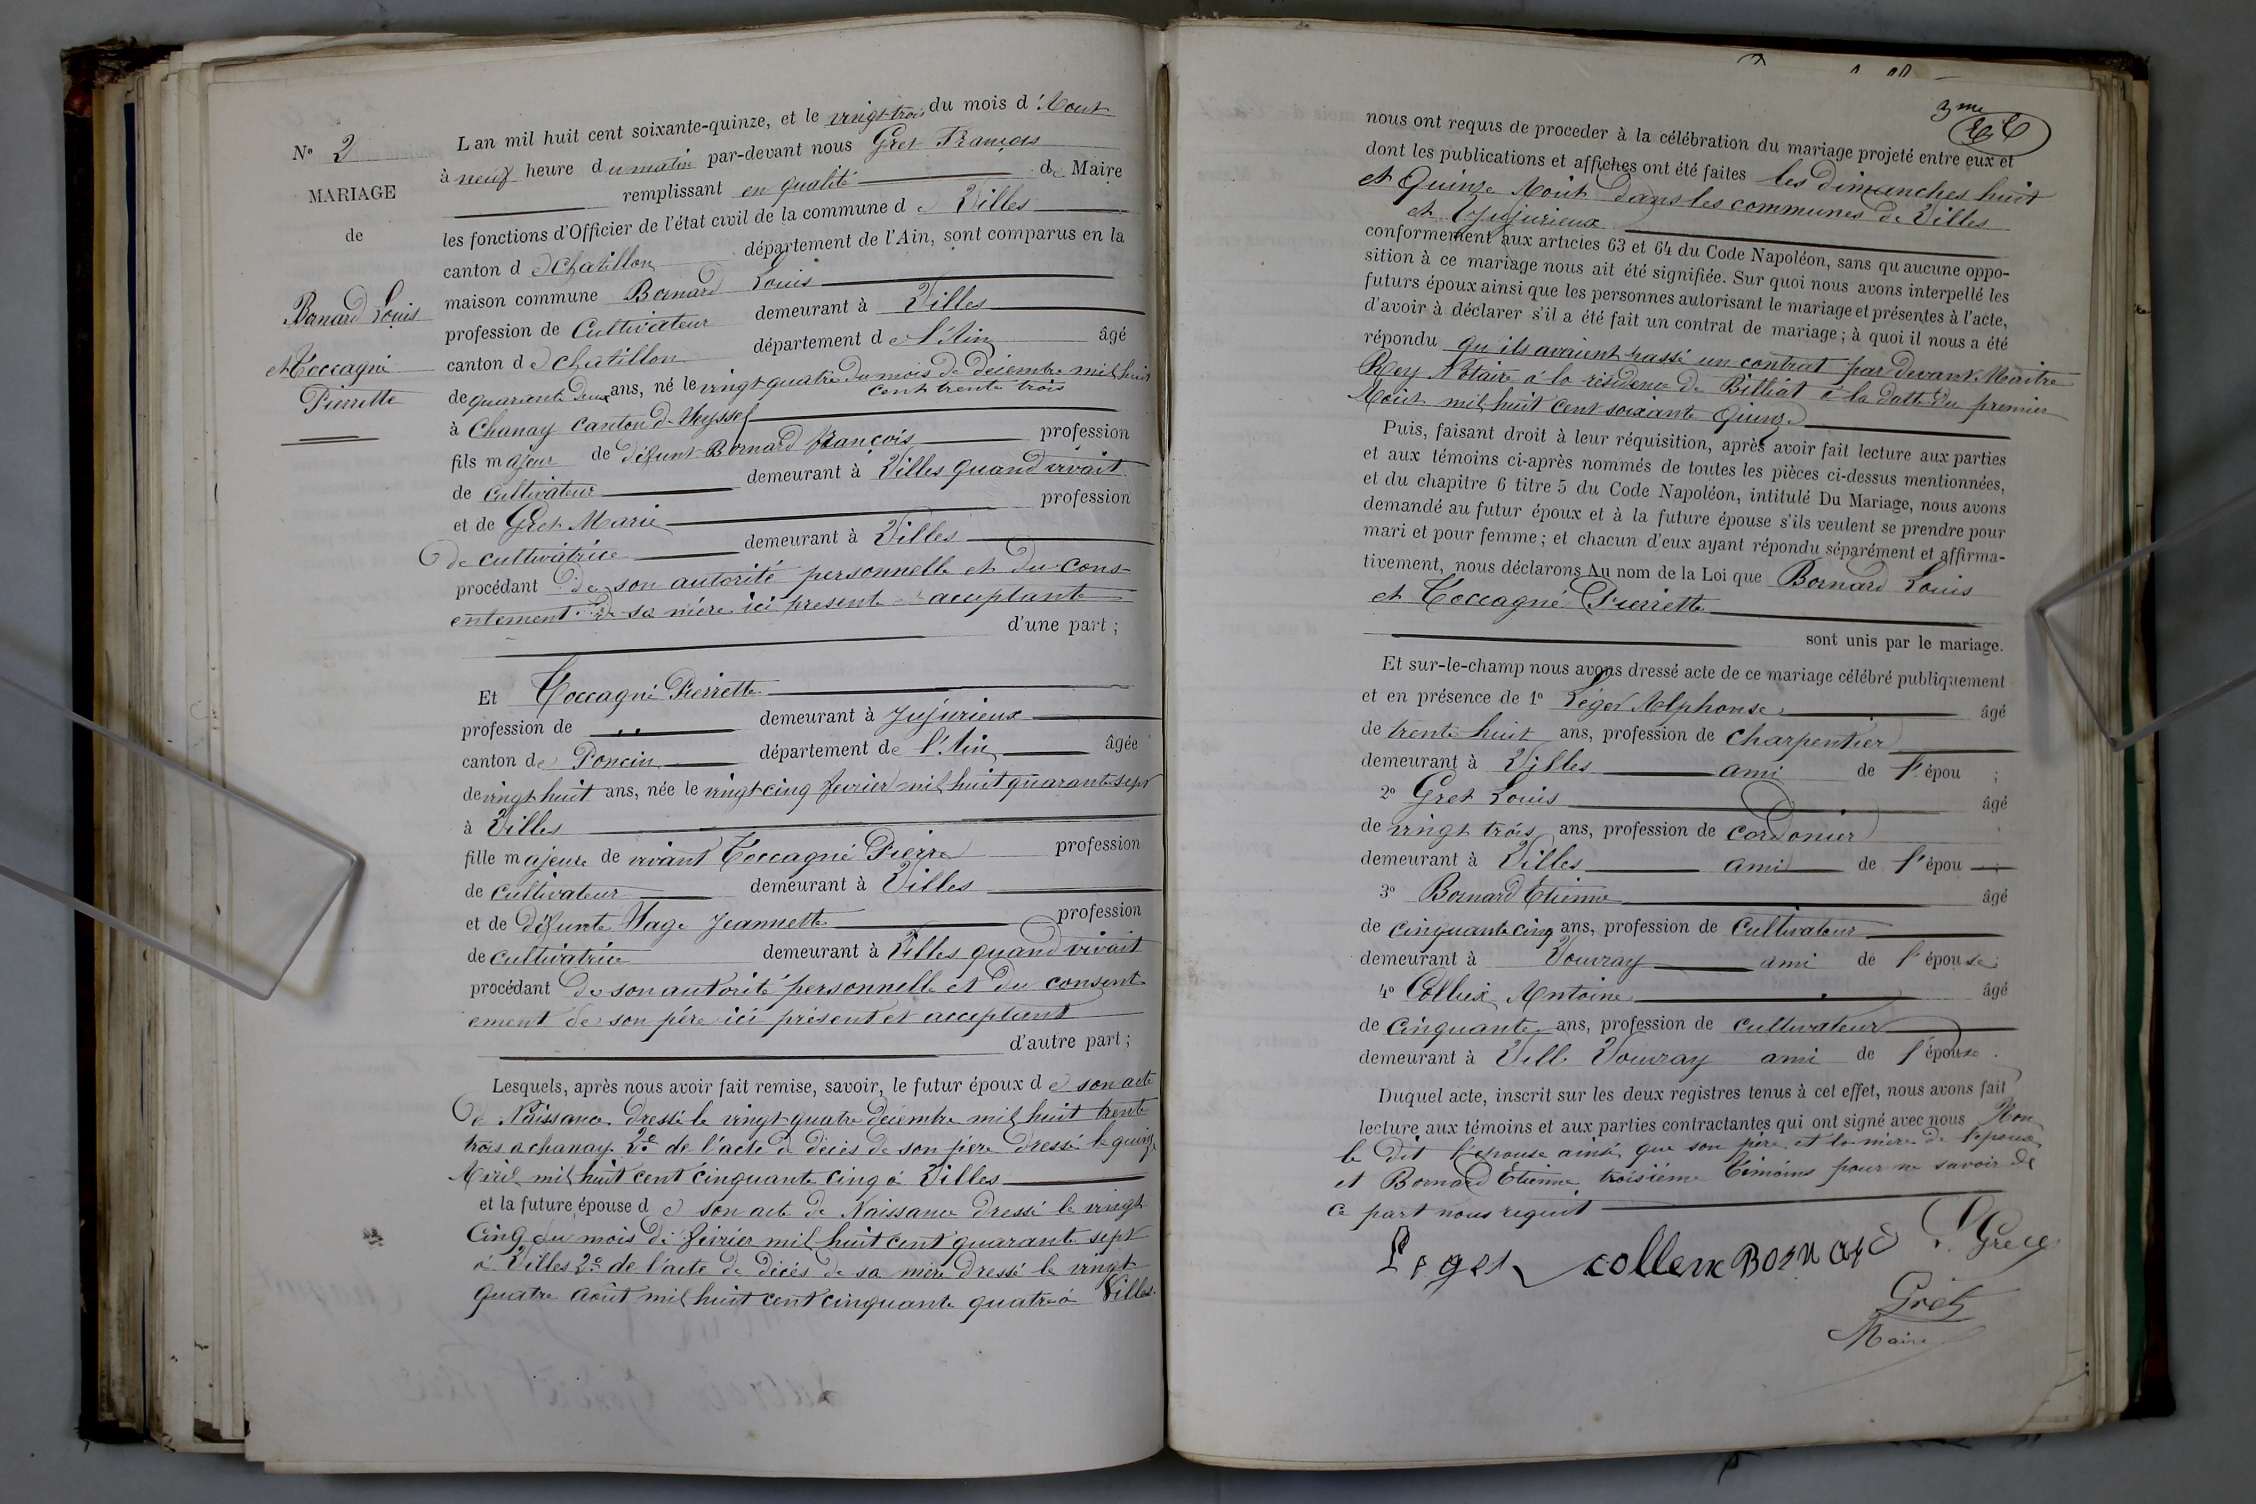 N° 2
MARIAGE
de
Bornard Louis
et Coccagné
Pierrette
Lan mil huit cent soixante-quinze, et le vingt trois du mois d'Aout
à neuf heure du matin par-devant nous Gret François
remplissant en qualité de Maire
les fonctions d'Officier de l'état civil de la commune de Villes
canton de chatillon département de l'Ain, sont comparus en la
maison commune Bornard Louis
profession de Cultivateur demeurant à Villes
canton de chatillon département de l'Ain âgé
de quarente deux ans, né le vingt quatre du mois de décembre mil huit
cent trente trois
à Chanay canton de Seyssel
fils majeur de défunt Bornard françois profession
de cultivateur demeurant à Villes quand vivait
et de Gret Marie profession
de cultivatrice demeurant à Villes
procédant de son autorité personnelle et du cons-
entement de sa mère ici presente et acceptante
d'une part ;
Et Coccagné Pierrette
profession de demeurant à Jujurieux
canton de Poncin département de l'Ain âgée
de vingt huit ans, née le vingt cinq fevrier mil huit quarante sept
à Villes
fille majeure de vivant Coccagné Pierre profession
de cultivateur demeurant à Villes
et de défunte Page Jeannette profession
de cultivatrice demeurant à Villes quand vivait
procédant de son autorité personnelle et du consent
ement de son père ici présent et acceptant
d'autre part ;
Lesquels, après nous avoir fait remise, savoir, le futur époux de son acte
de Naissance dressé le vingt quatre décembre mil huit trente
trois a chanay 2° de l'acte de décès de son père dressé le quinze
Avril mil huit cent cinquante cinq à Villes
et la future épouse de son acte de Naissance dressé le vingt
Cinq du mois de février mil huit cent quarante sept
à Villes 2° de l'acte de décès de sa mère dressé le vingt
quatre août mil huit cent cinquante quatre à Villes.
3me
nous ont requis de proceder à la célébration du mariage projeté entre eux et
dont les publications et affiches ont été faites les dimanches huit
et Quinze Aout dans les communes de Villes
et Jujurieux
conformément aux articles 63 et 64 du Code Napoléon, sans qu aucune oppo-
sition à ce mariage nous ait été signifiée. Sur quoi nous avons interpellé les
futurs époux ainsi que les personnes autorisant le mariage et présentes à l'acte,
d'avoir à déclarer s'il a été fait un contrat de mariage ; à quoi il nous a été
répondu qu'ils avaient passé un contrat par devant Maitre
Rey Notaire à la résidence de Billiat à la datte du premier
Aout mil huit cent soixante Quinze
Puis, faisant droit à leur réquisition, après avoir fait lecture aux parties
et aux témoins ci-après nommés de toutes les pièces ci-dessus mentionnées,
et du chapitre 6 titre 5 du Code Napoléon, intitulé Du Mariage, nous avons
demandé au futur époux et à la future épouse s'ils veulent se prendre pour
mari et pour femme ; et chacun d'eux ayant répondu séparément et affirma-
tivement, nous déclarons Au nom de la Loi que Bornard Louis
et Coccagné Pierrette
sont unis par le mariage.
Et sur-le-champ nous avons dressé acte de ce mariage célébré publiquement
et en présence de 1° Léger Alphonse âgé
de trente huit ans, profession de charpentier
demeurant à Villes ami de l'épou ;
2° Gret Louis âgé
de vingt trois ans, profession de cordonier
demeurant à Villes ami de l'épou ;
3° Bornard Etienne âgé
de cinquante cinq ans, profession de cultivateur
demeurant à Vouvray ami de l'épouse ;
4° Collux Antoine âgé
de cinquante ans, profession de cultivateur
demeurant à Vill Vouvray ami de l'épouse.
Duquel acte, inscrit sur les deux registres tenus à cet effet, nous avons fait
lecture aux témoins et aux parties contractantes qui ont signé avec nous Non
le dit l'epouse ainsi que son père et la mère de l'epoux
et Bornard Etienne troisième témoins pour ne savoir de
ce part nous requit
Leger collux Bornard
Gret
Maire